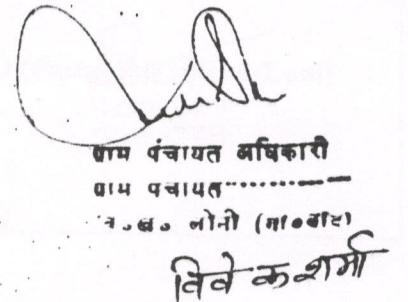 ग्राम पंचायत अधिकारी
ग्राम पंचायत............
वि.ख. लोनी (गा०बाद)
विवेक शर्मा